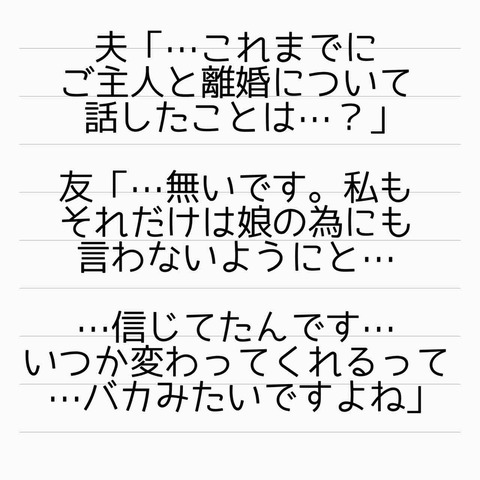 夫「…これまでに
ご主人と離婚について
話したことは…？」
友「…無いです。私も
それだけは娘の為にも
言わないようにと…
…信じてたんです…
いつか変わってくれるって
…バカみたいですよね」